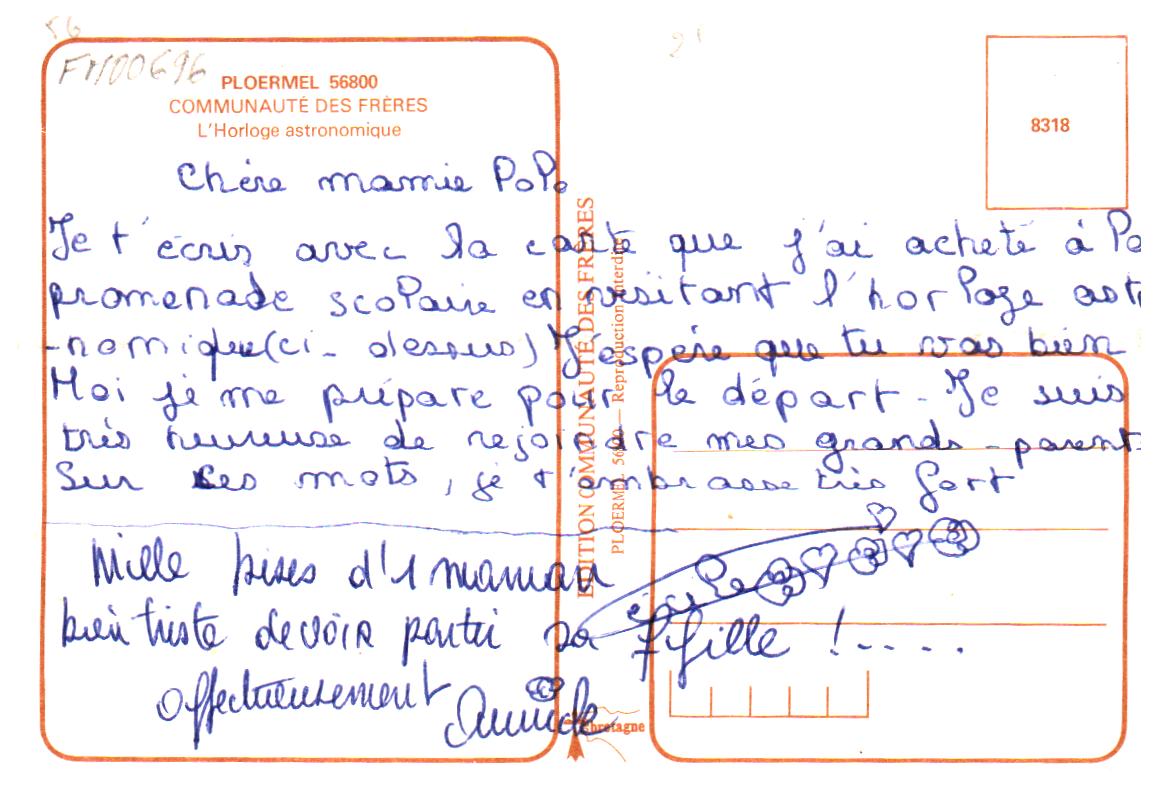 56
FM00696
PLOERMEL 56800
COMMUNAUTÉ DES FRÈRES
L'Horloge astronomique
8318
Chère mamie PoPo
Je t'écris avec la carte que j'ai acheté à la
promenade scolaire en visitant l'horloge ast
-nomique (ci-dessus) J'espère que tu vas bien
Moi je me prépare pour le départ. Je suis
très heureuse de rejoindre mes grands-parent
Sur ces mots, je t'embrasse très fort
Mille bises d'1 maman
bien triste de voir partir sa fille !.....
affectueusement
EDITION COMMUNAUTÉ DES FRÈRES
PLOERMEL 56800 — Reproduction interdite
bretagne